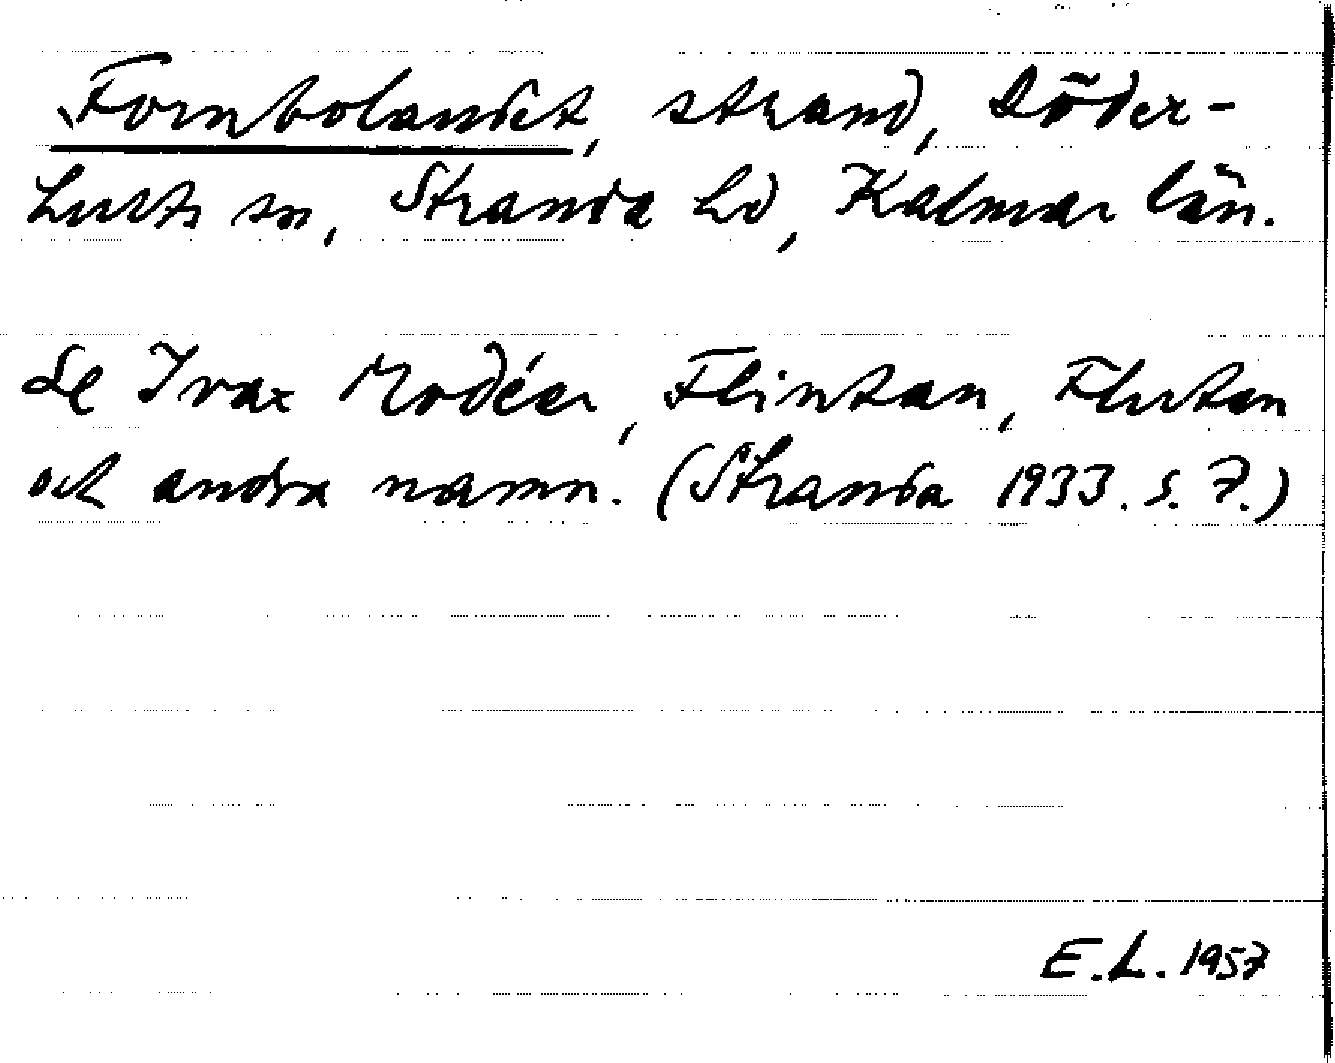 Fornbolandet, strand, Döder-
hults sn, Stranda hd, Kalmar län.
Se Ivar Modéer, Flintan, Flutan
och andra namn. (Stranda 1933. s. 7.)
E.L. 1957